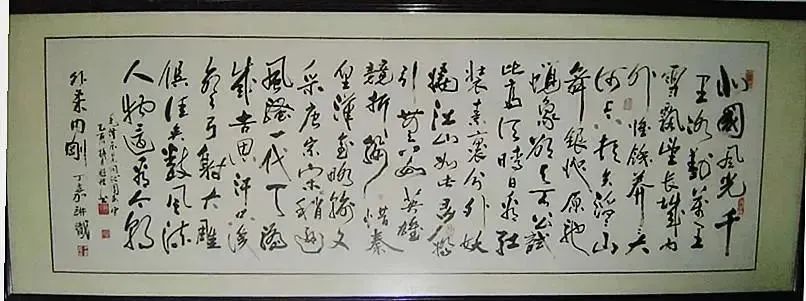 北國風光千
里冰封萬里
雪飄望長城內
外惟餘莽莽大
河上下頓失滔滔山
舞銀蛇原馳
蠟象欲與天公試
比高須晴日看紅
裝素裹分外妖
嬈江山如此多嬌
引無數英雄
競折腰惜秦
皇漢武略輸文
采唐宗宋祖稍遜
風騷一代天驕
成吉思汗只識
彎弓射大雕
俱往矣數風流
人物還看今朝
外柔內剛